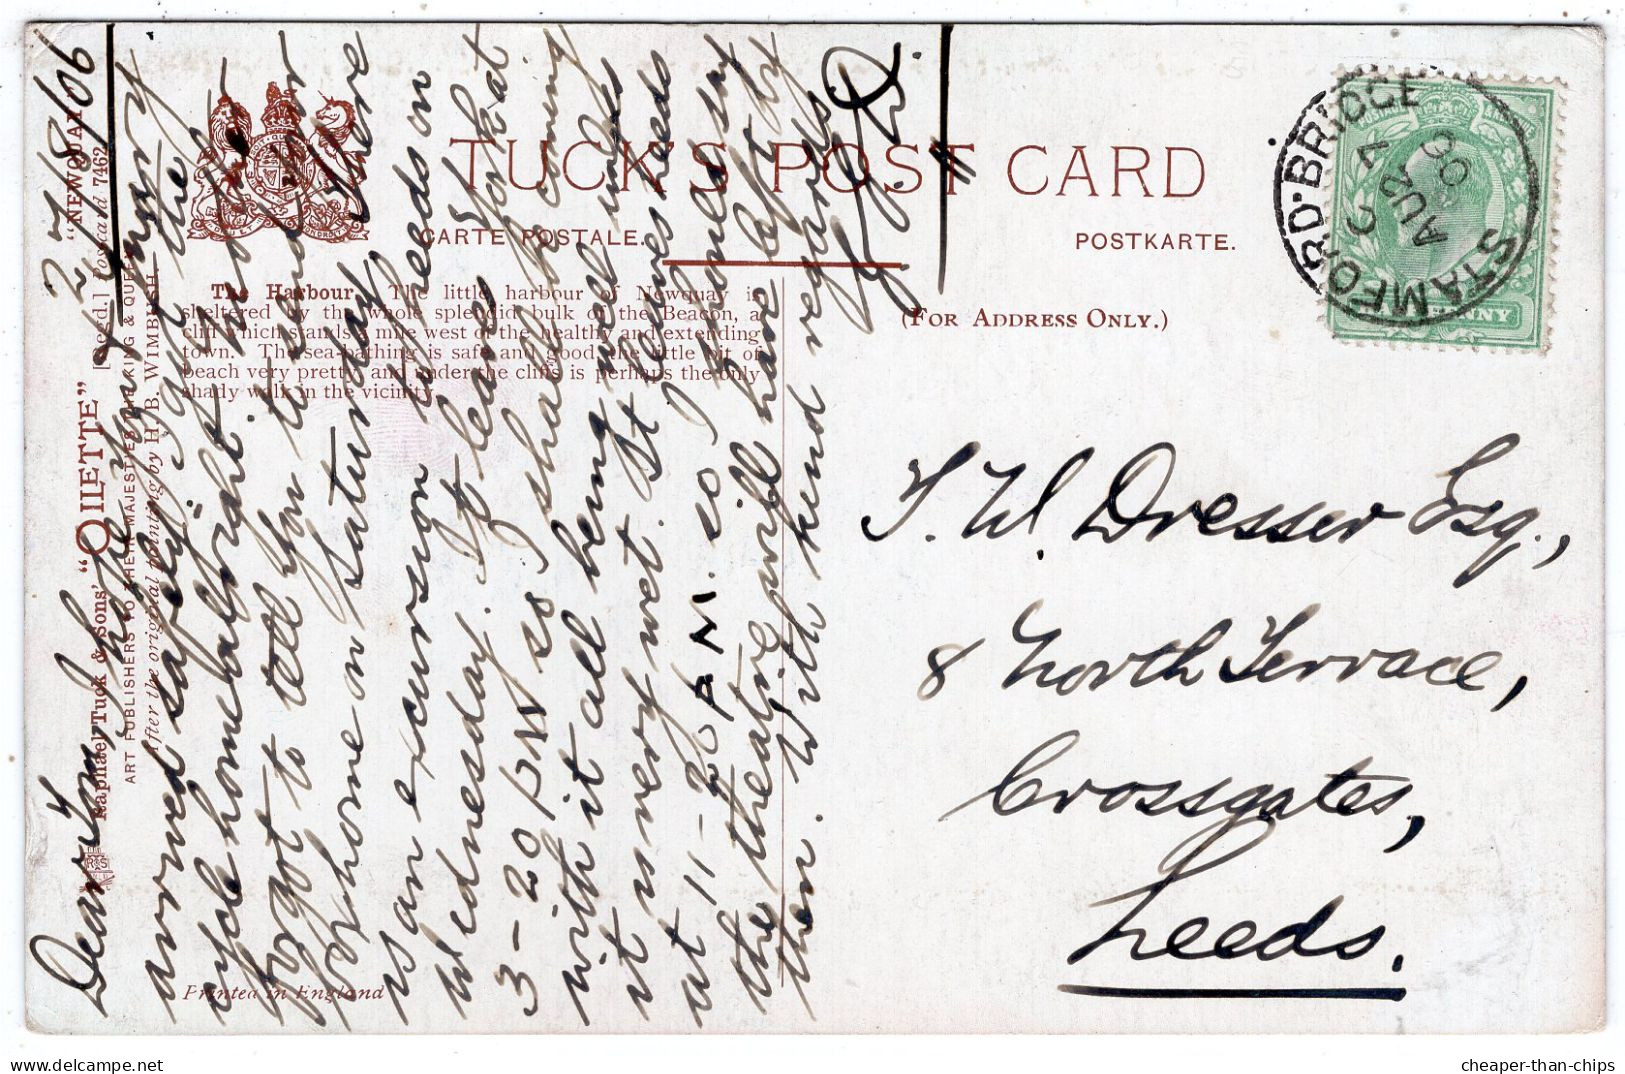 TUCK'S POST CARD
CARTE POSTALE.
POSTKARTE.
(FOR ADDRESS ONLY.)
The Harbour. The little harbour of Newquay is
sheltered by the whole splendid bulk of the Beacon, a
cliff which stands a mile west of the healthy and extending
town. The sea-bathing is safe and good the little bit of
beach very pretty, and under the cliffs is perhaps the only
shady walk in the vicinity.
Raphael Tuck & Sons' "OILETTE" [Regd.] Postcard 7462
"NEWQUAY"
ART PUBLISHERS TO THEIR MAJESTIES THE KING & QUEEN
After the original painting by H. B. WIMBUSH.
Printed in England
27/8/06
Dear Tom, I hope your
arrived safely, got the
cycle home alright. I
forgot to tell you to send
home on Saturday. There
is an excursion to Leeds on
Wednesday. It leaves York at
3-20 PM so I shall be coming
with it all being well unless
it is very wet. It leaves Leeds
at 11-20 PM. so I should say
the theatre will have left by
then. With kind regards
STAMFORD-BRIDGE
C
AU 27
06
PENNY
T. W. Dresser Esq.,
8 North Terrace,
Crossgates,
Leeds.
cheaper-than-chips